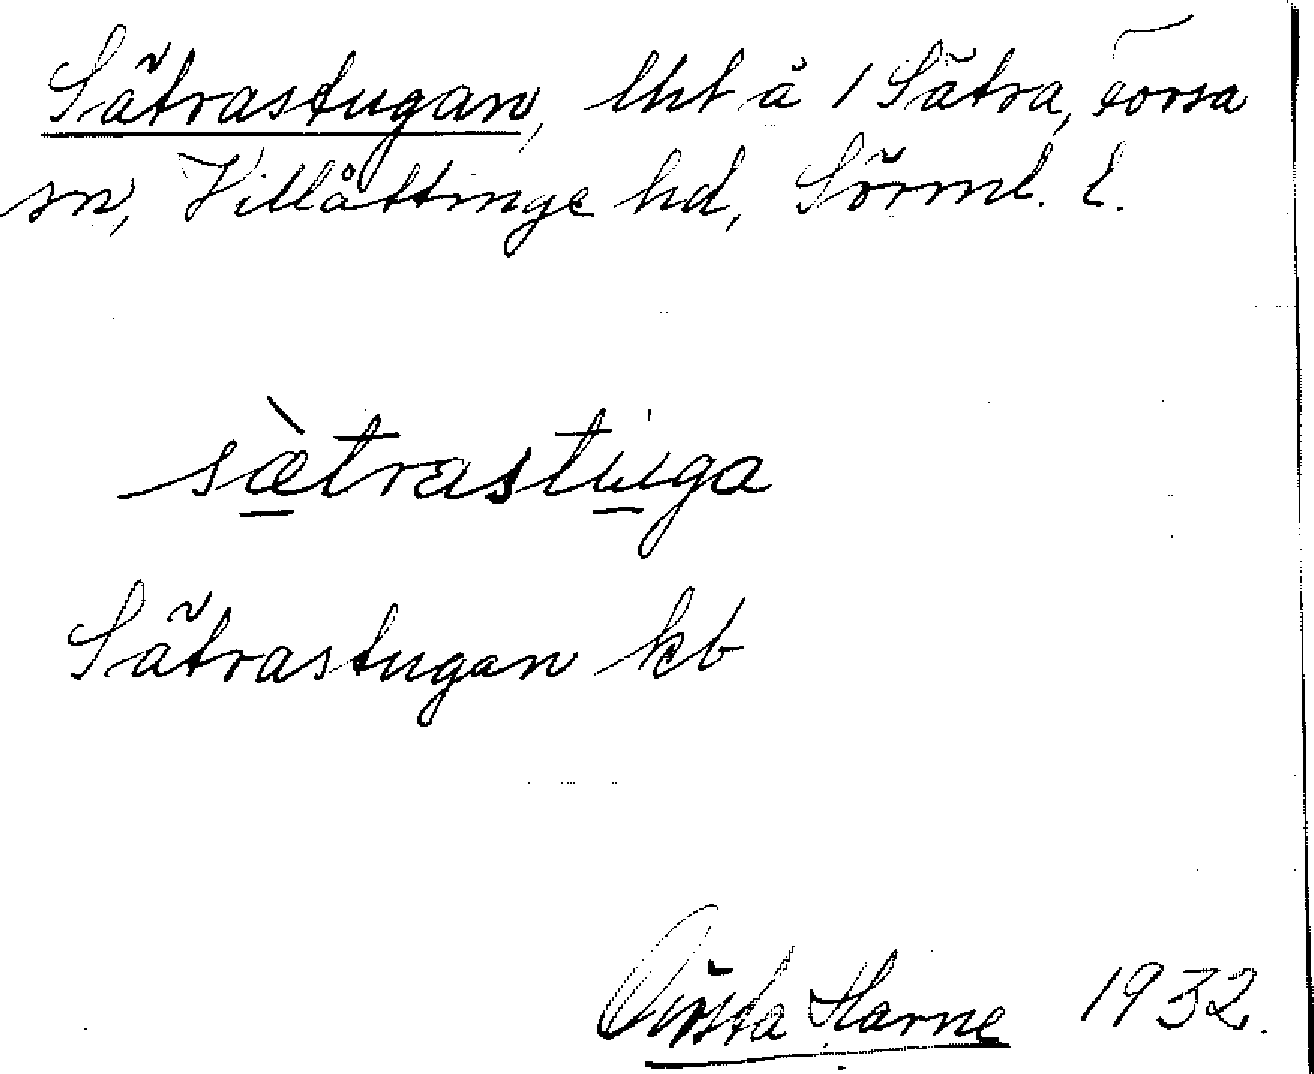 Sätrastugan, lht å 1 Sätra, Forssa
sn, Villåttinge hd, Sörml. l.
sæ̀trastuga
Sätrastugan kb
Gösta Harne 1932.